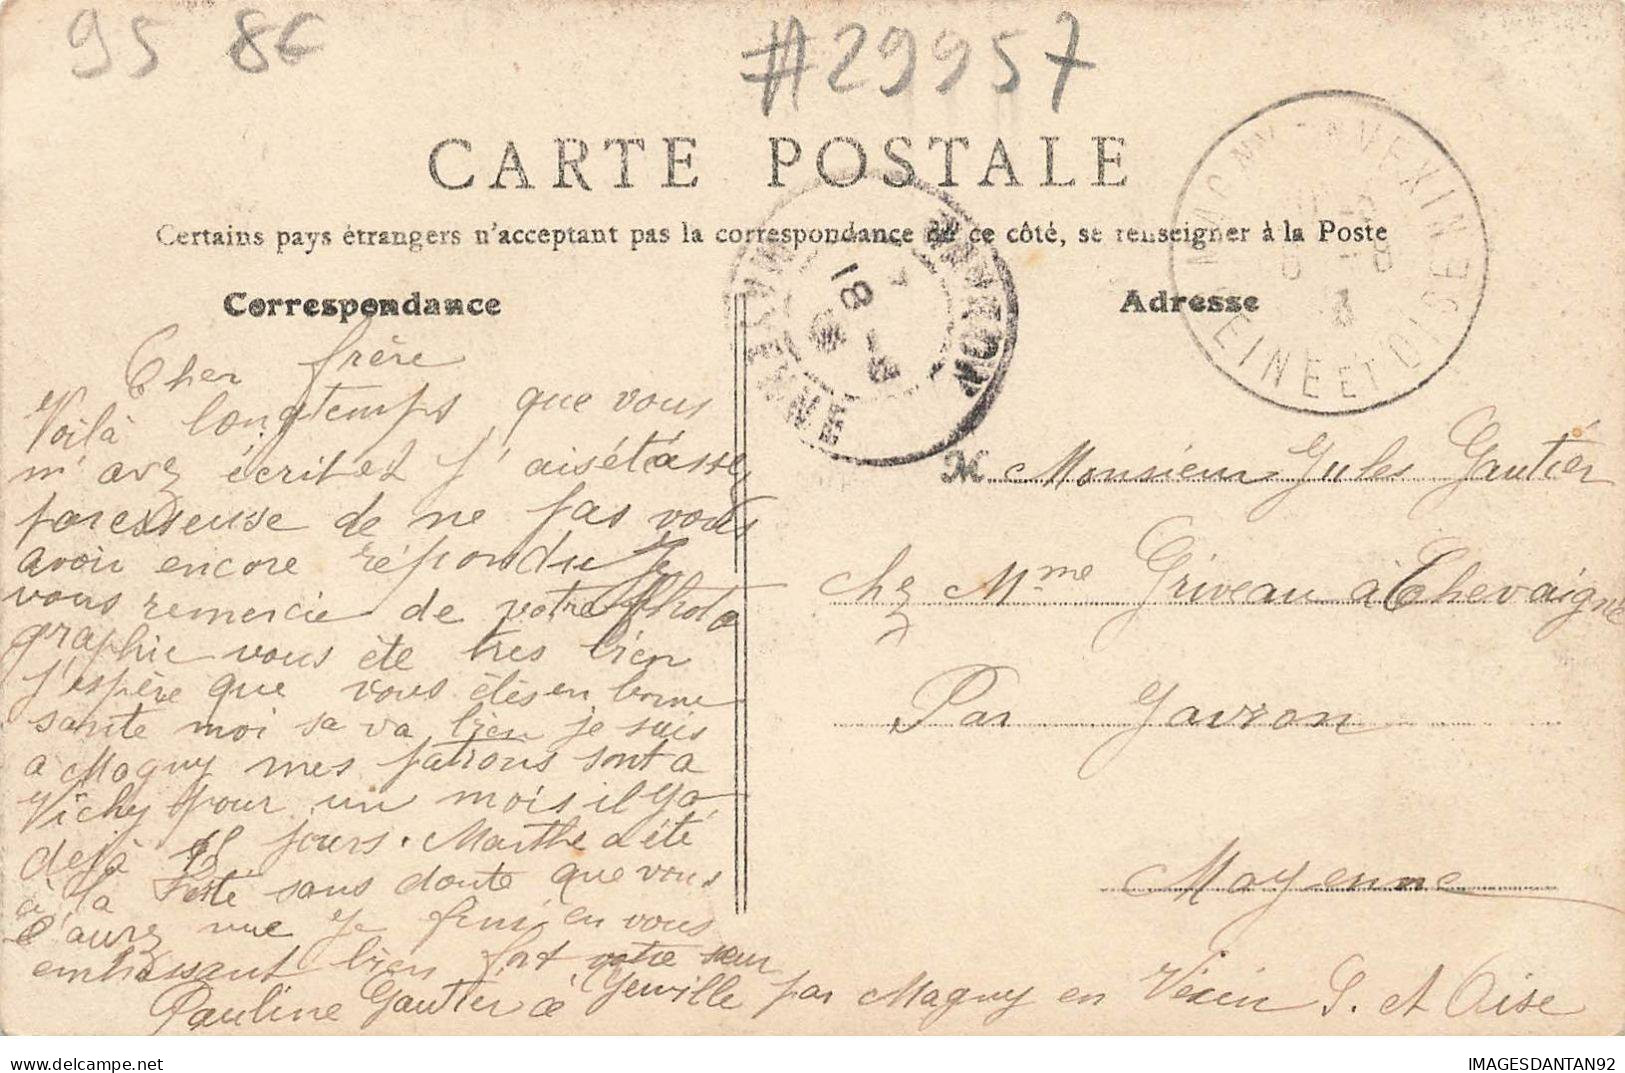 95 8€
#29957
CARTE POSTALE
Certains pays étrangers n'acceptant pas la correspondance de ce côté, se renseigner à la Poste
Correspondance
Adresse
MAGNY-EN-VEXIN
SEINE ET OISE
JAVRON
MAYENNE
18
Cher frère
Voilà longtemps que vous
m'avez écrit et j'ai étét assez
paresseuse de ne pas vous
avoir encore répondu Je
vous remercie de votre photo
graphie vous ête tres bien
j'espère que vous êtes en bonne
sante moi sa va bien je suis
a Magny mes patrons sont a
Vichy pour un mois il y a
deja jours. Marthe a été
à la sans doute que vous
l'aurez vue Je fini en vous
embrassant bien fort votre seur
Pauline Gautier à Genville par Magny en Vexin S. et Oise
M Monsieur Jules Gautier
chez Mme Griveau à Chevaigné
Par Javron
Mayenne
IMAGESDANTAN92
delcampe.net